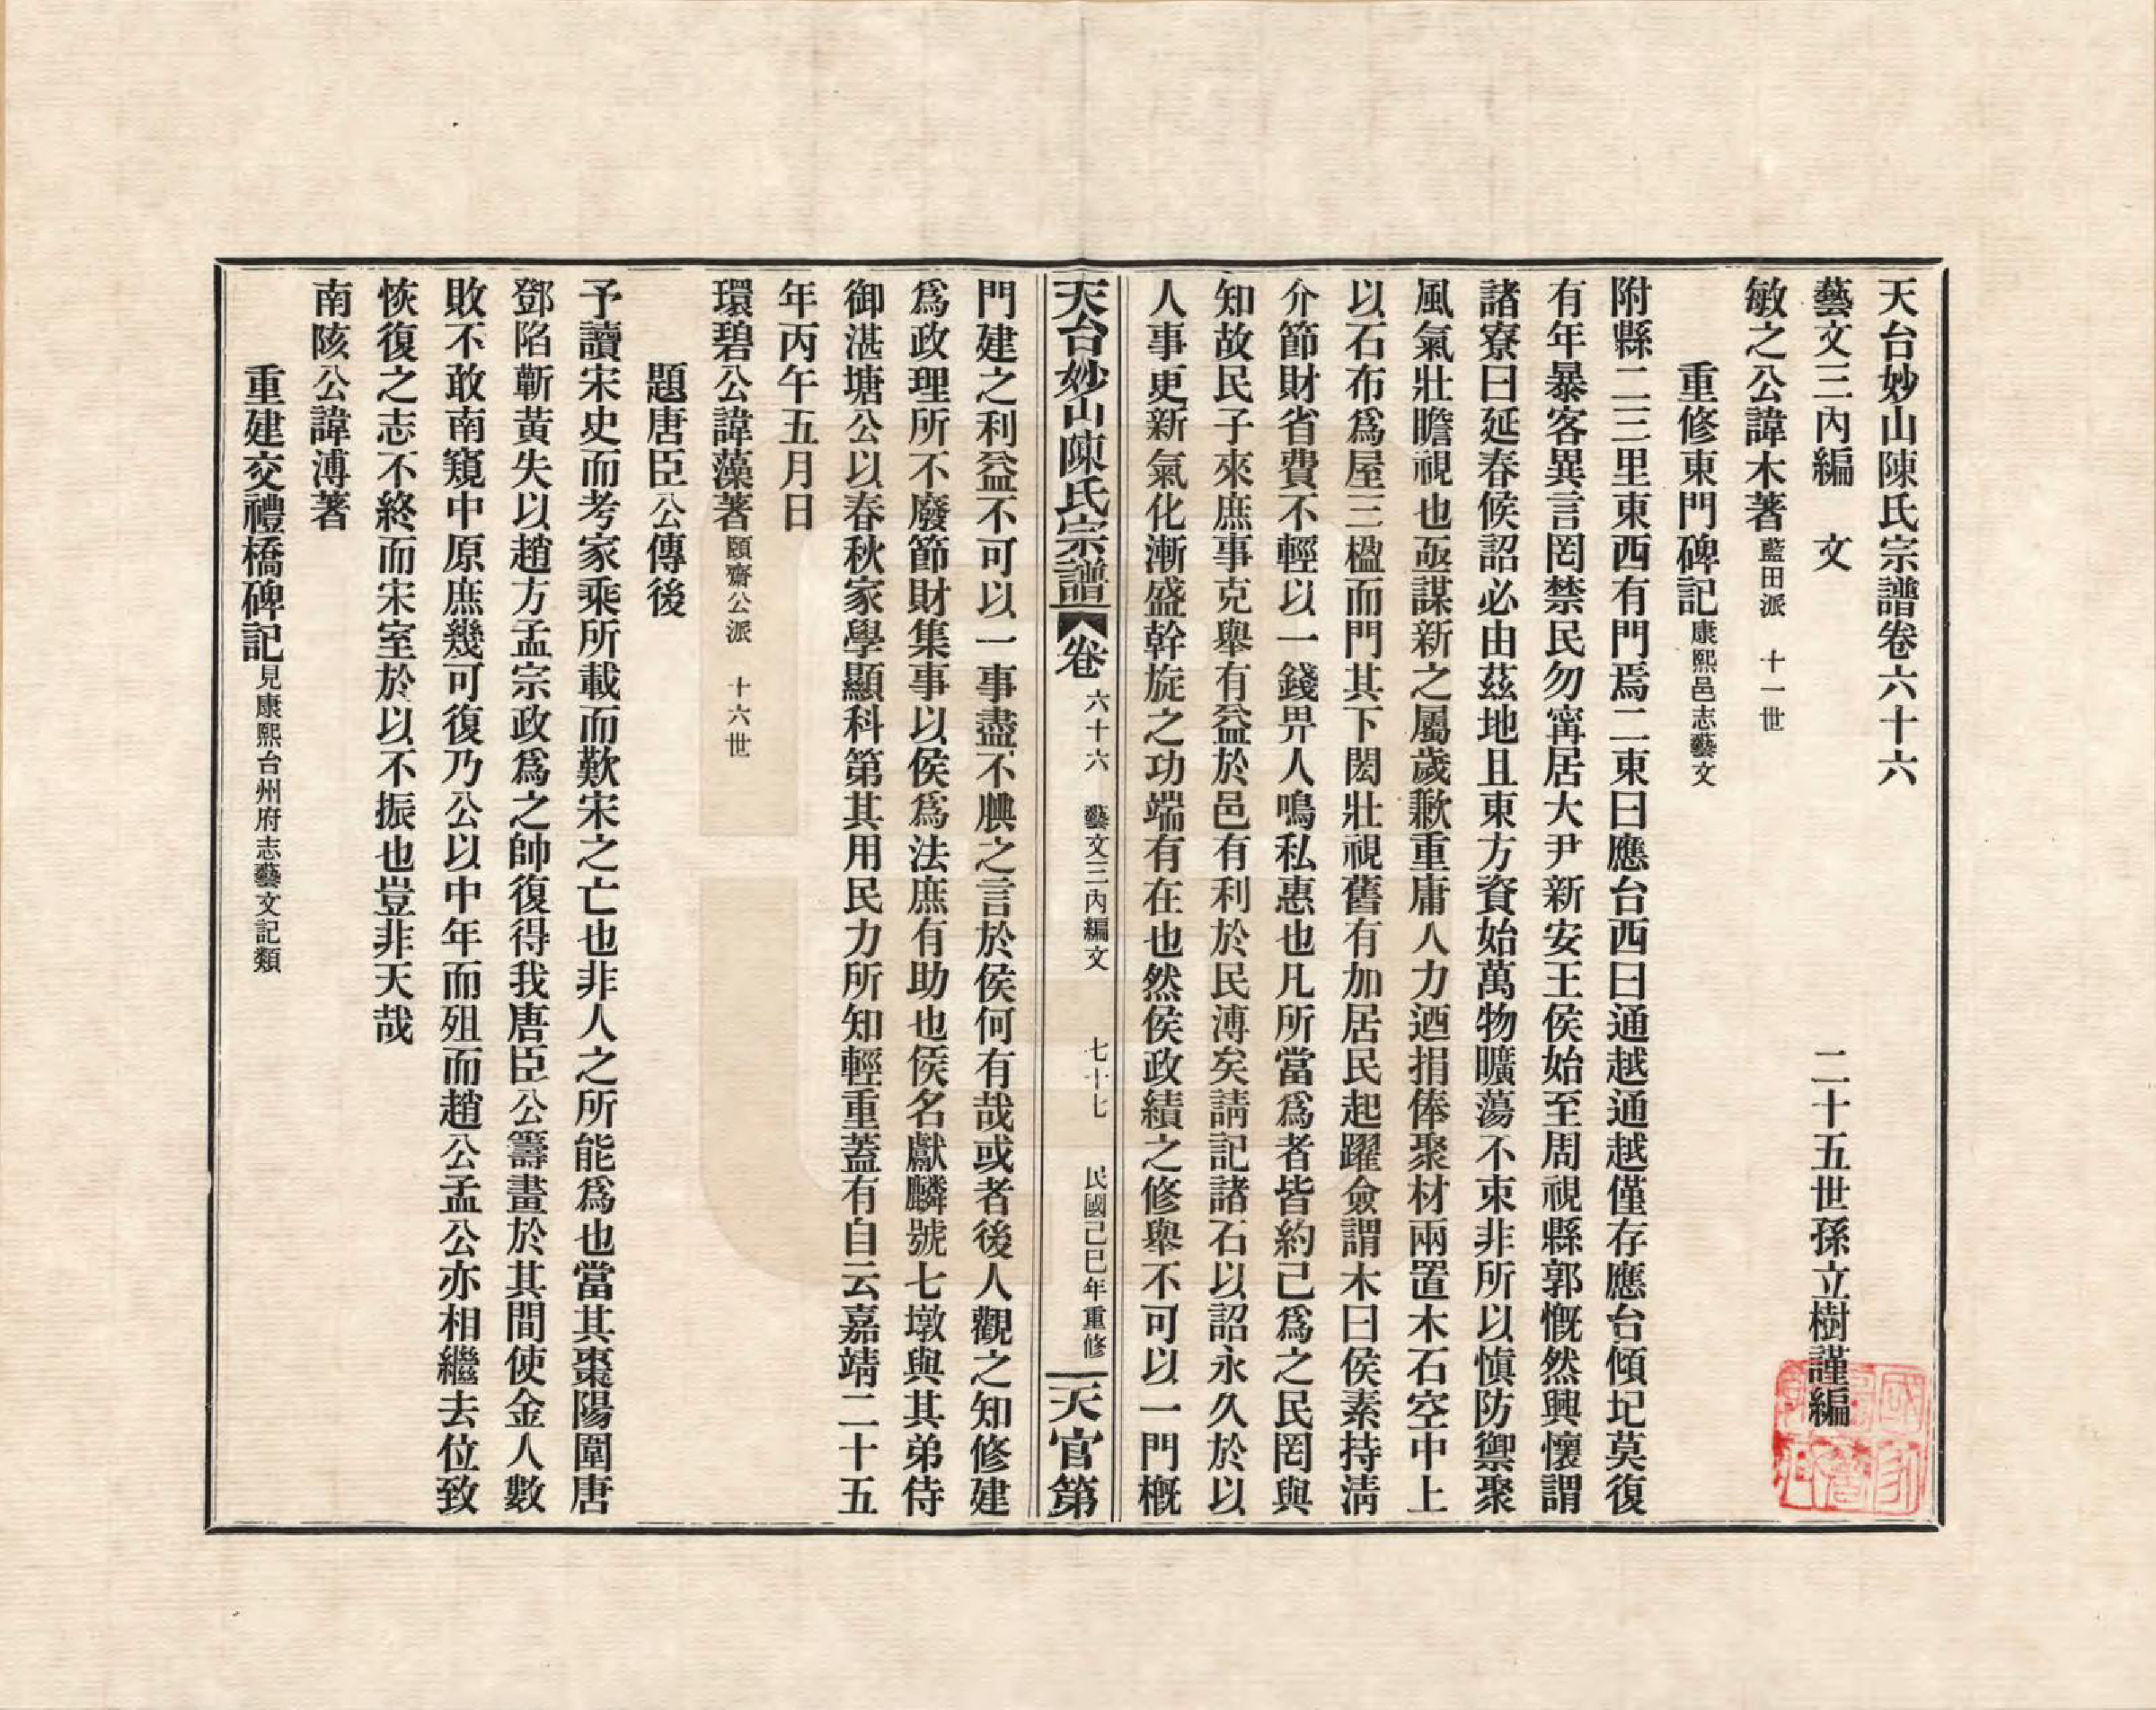 天台妙山陳氏宗譜卷六十六
藝文三內編　文　二十五世孫立樹謹編
敏之公諱木著藍田派　十一世
重修東門碑記康熙邑志藝文
附縣二三里東西有門焉二東曰應台西曰通越通越僅存應台傾圮莫復
有年暴客異言罔禁民勿甯居大尹新安王侯始至周視縣郭慨然興懷謂
諸寮曰延春候詔必由茲地且東方資始萬物曠蕩不束非所以愼防禦聚
風氣壯瞻視也亟謀新之屬歲歉重庸人力迺捐俸聚材兩置木石空中上
以石布爲屋三楹而門其下閎壯視舊有加居民起躍僉謂木曰侯素持淸
介節財省費不輕以一錢畀人鳴私惠也凡所當爲者皆約己爲之民罔與
知故民子來庶事克舉有益於邑有利於民溥矣請記諸石以詔永久於以
人事更新氣化漸盛幹旋之功端有在也然侯政績之修舉不可以一門槪
天台妙山陳氏宗譜　卷六十六　藝文三內編文　七十七　民國己巳年重修　天官第
門建之利益不可以一事盡不腆之言於侯何有哉或者後人觀之知修建
爲政理所不廢節財集事以侯爲法庶有助也侯名獻麟號七墩與其弟侍
御湛塘公以春秋家學顯科第其用民力所知輕重蓋有自云嘉靖二十五
年丙午五月日
環碧公諱藻著頤齋公派　十六世
題唐臣公傳後
予讀宋史而考家乘所載而歎宋之亡也非人之所能爲也當其棗陽圍唐
鄧陷蘄黃失以趙方孟宗政爲之帥復得我唐臣公籌畫於其間使金人數
敗不敢南窺中原庶幾可復乃公以中年而殂而趙公孟公亦相繼去位致
恢復之志不終而宋室於以不振也豈非天哉
南陔公諱溥著
重建交禮橋碑記見康熙台州府志藝文記類